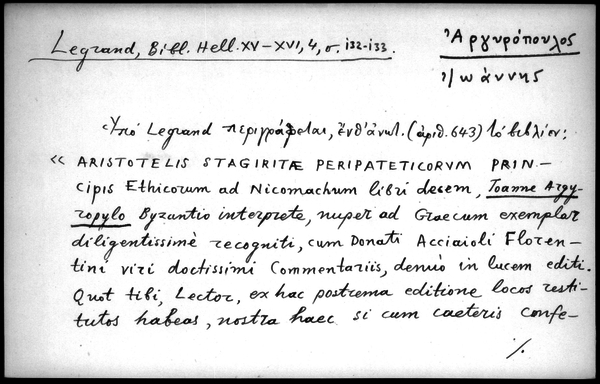 Legrand, Bibl. Hell. XV–XVI, 4, σ. 132-133.
Ἀργυρόπουλος
Ἰωάννης
Ὑπό Legrand περιγράφεται, ἔνθ' ἀνωτ. (ἀριθ. 643) τό βιβλίον:
« ARISTOTELIS STAGIRITÆ PERIPATETICORVM PRIN–
cipis Ethicorum ad Nicomachum libri decem, Joanne Argy-
ropylo Byzantio interprete, nuper ad Graecum exemplar
diligentissimè recogniti, cum Donati Acciaioli Floren–
tini viri doctissimi Commentariis, denuò in lucem editi.
Quot tibi, Lector, ex hac postrema editione locos resti-
tutos habeas, nostra haec si cum caeteris confe–
·/.